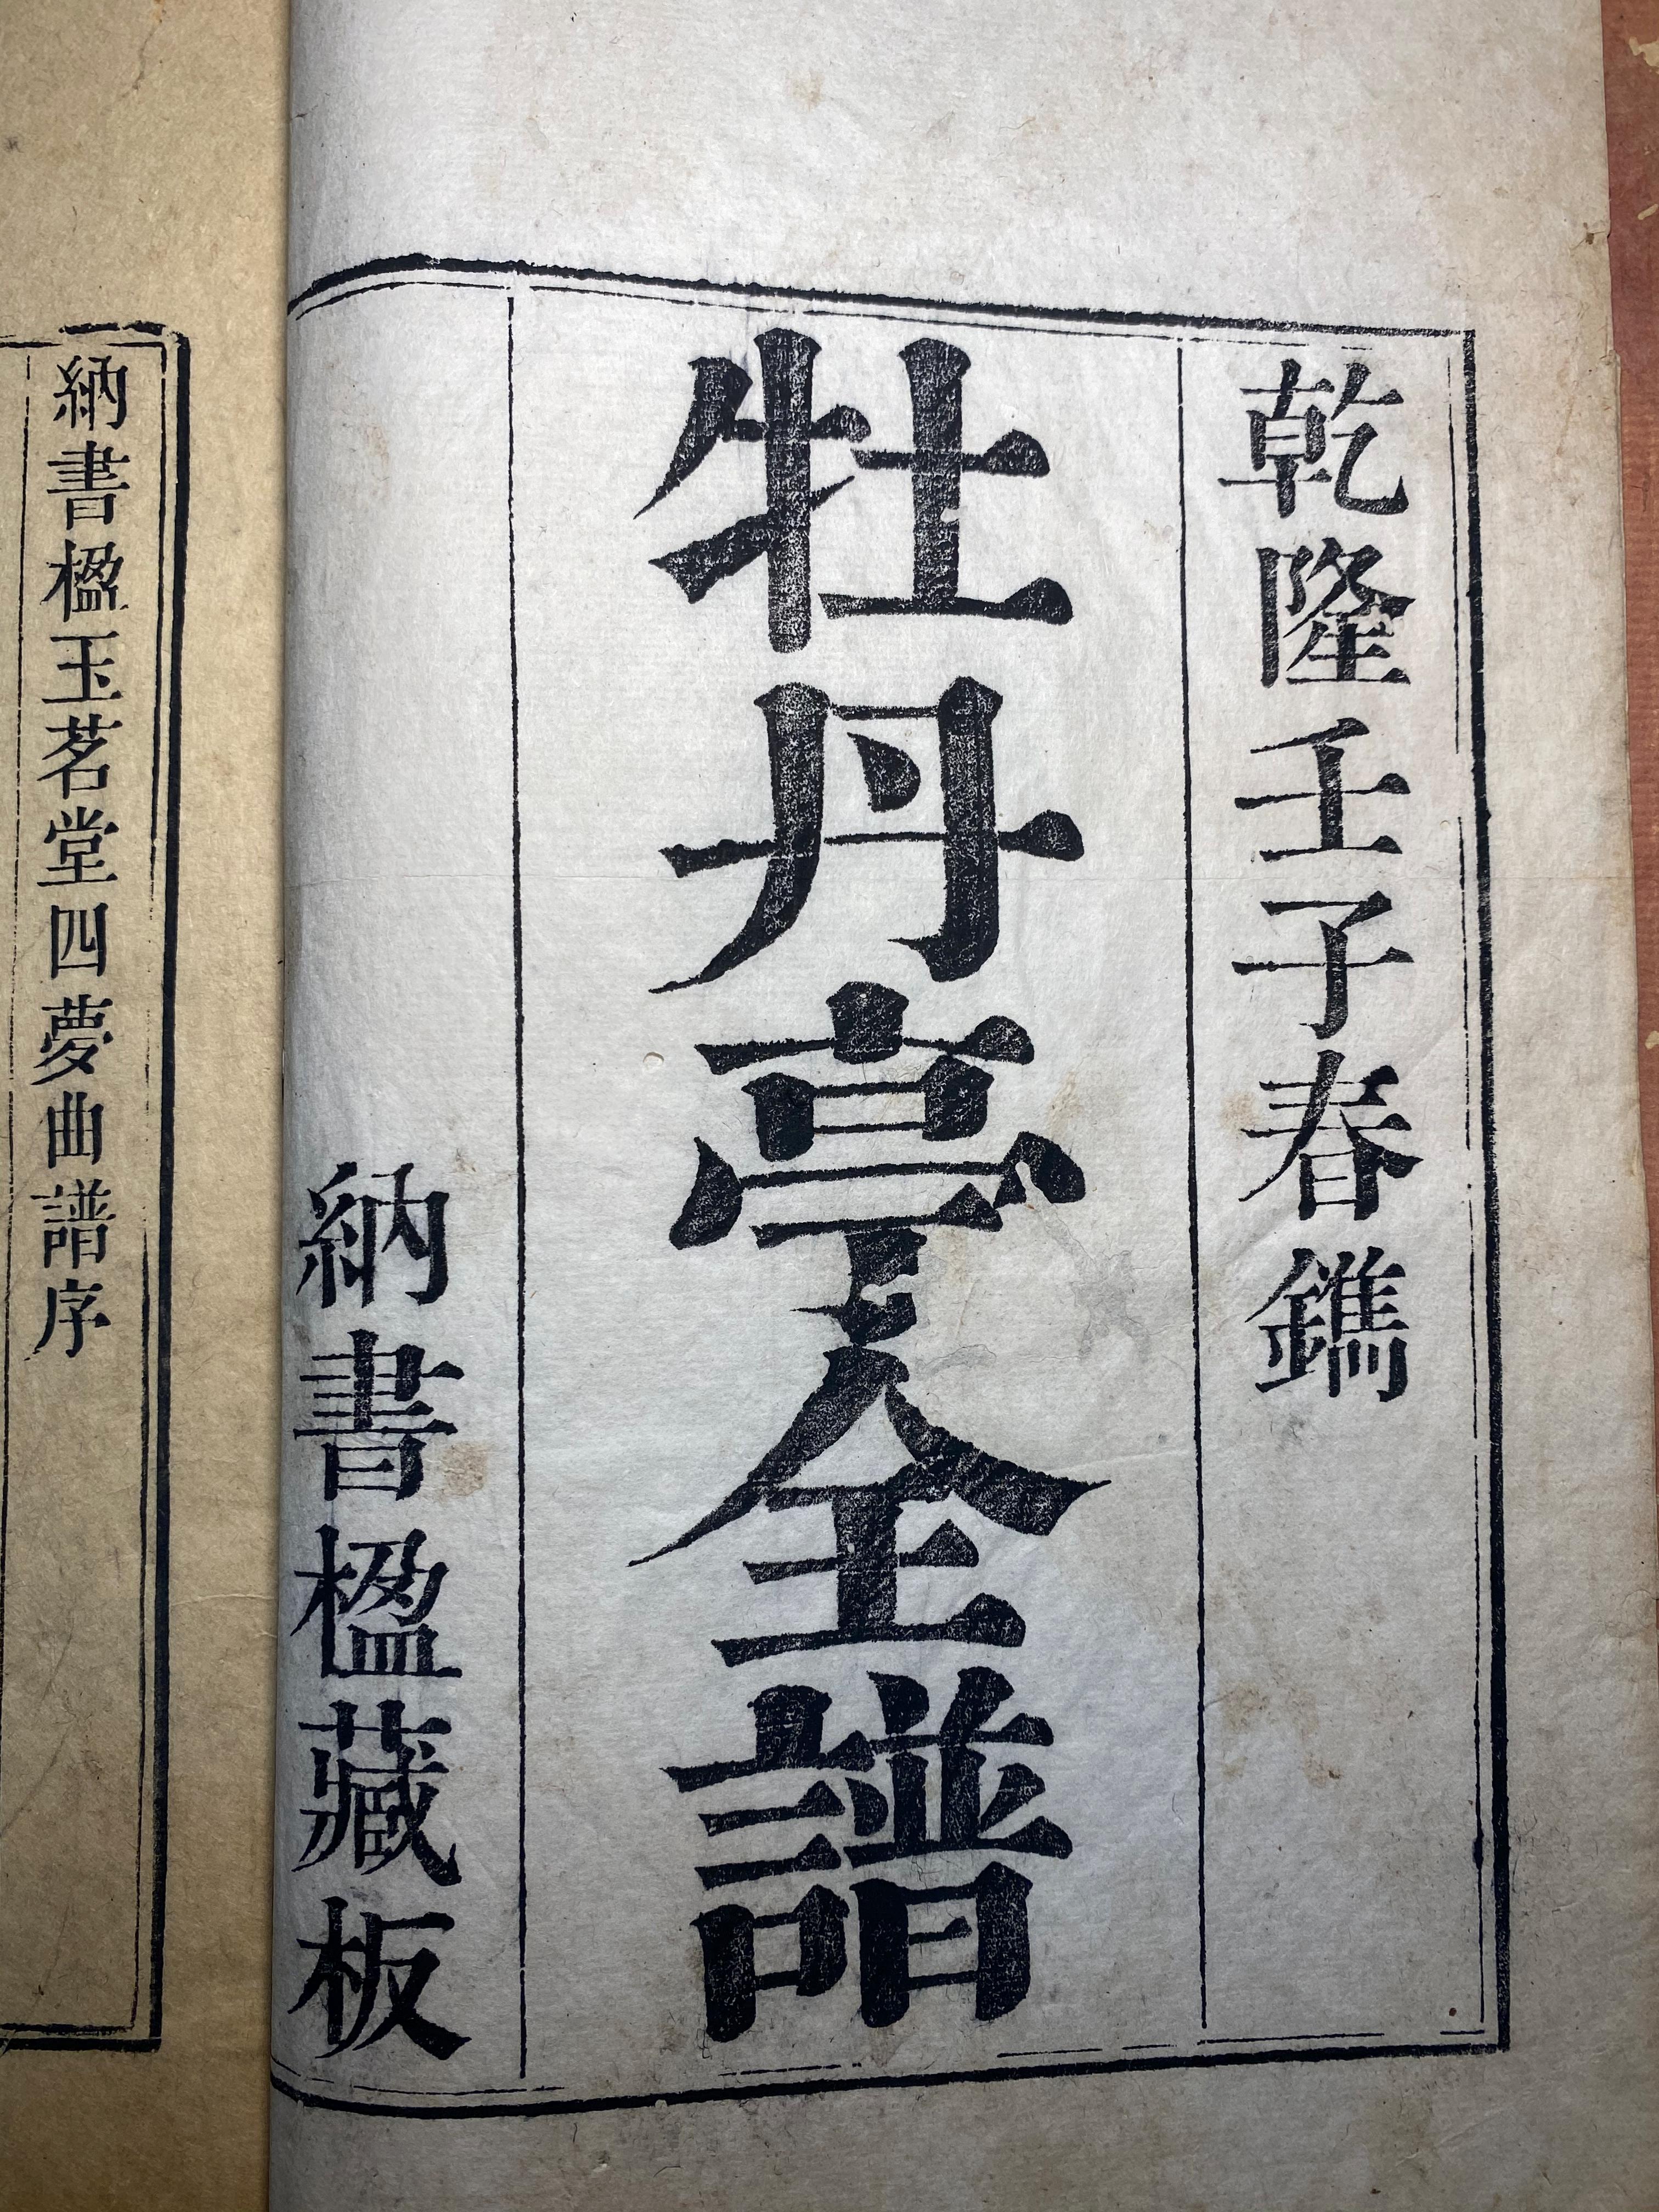 乾隆壬子春鐫
牡丹亭全譜
納書楹藏板
納書楹玉茗堂四夢曲譜序